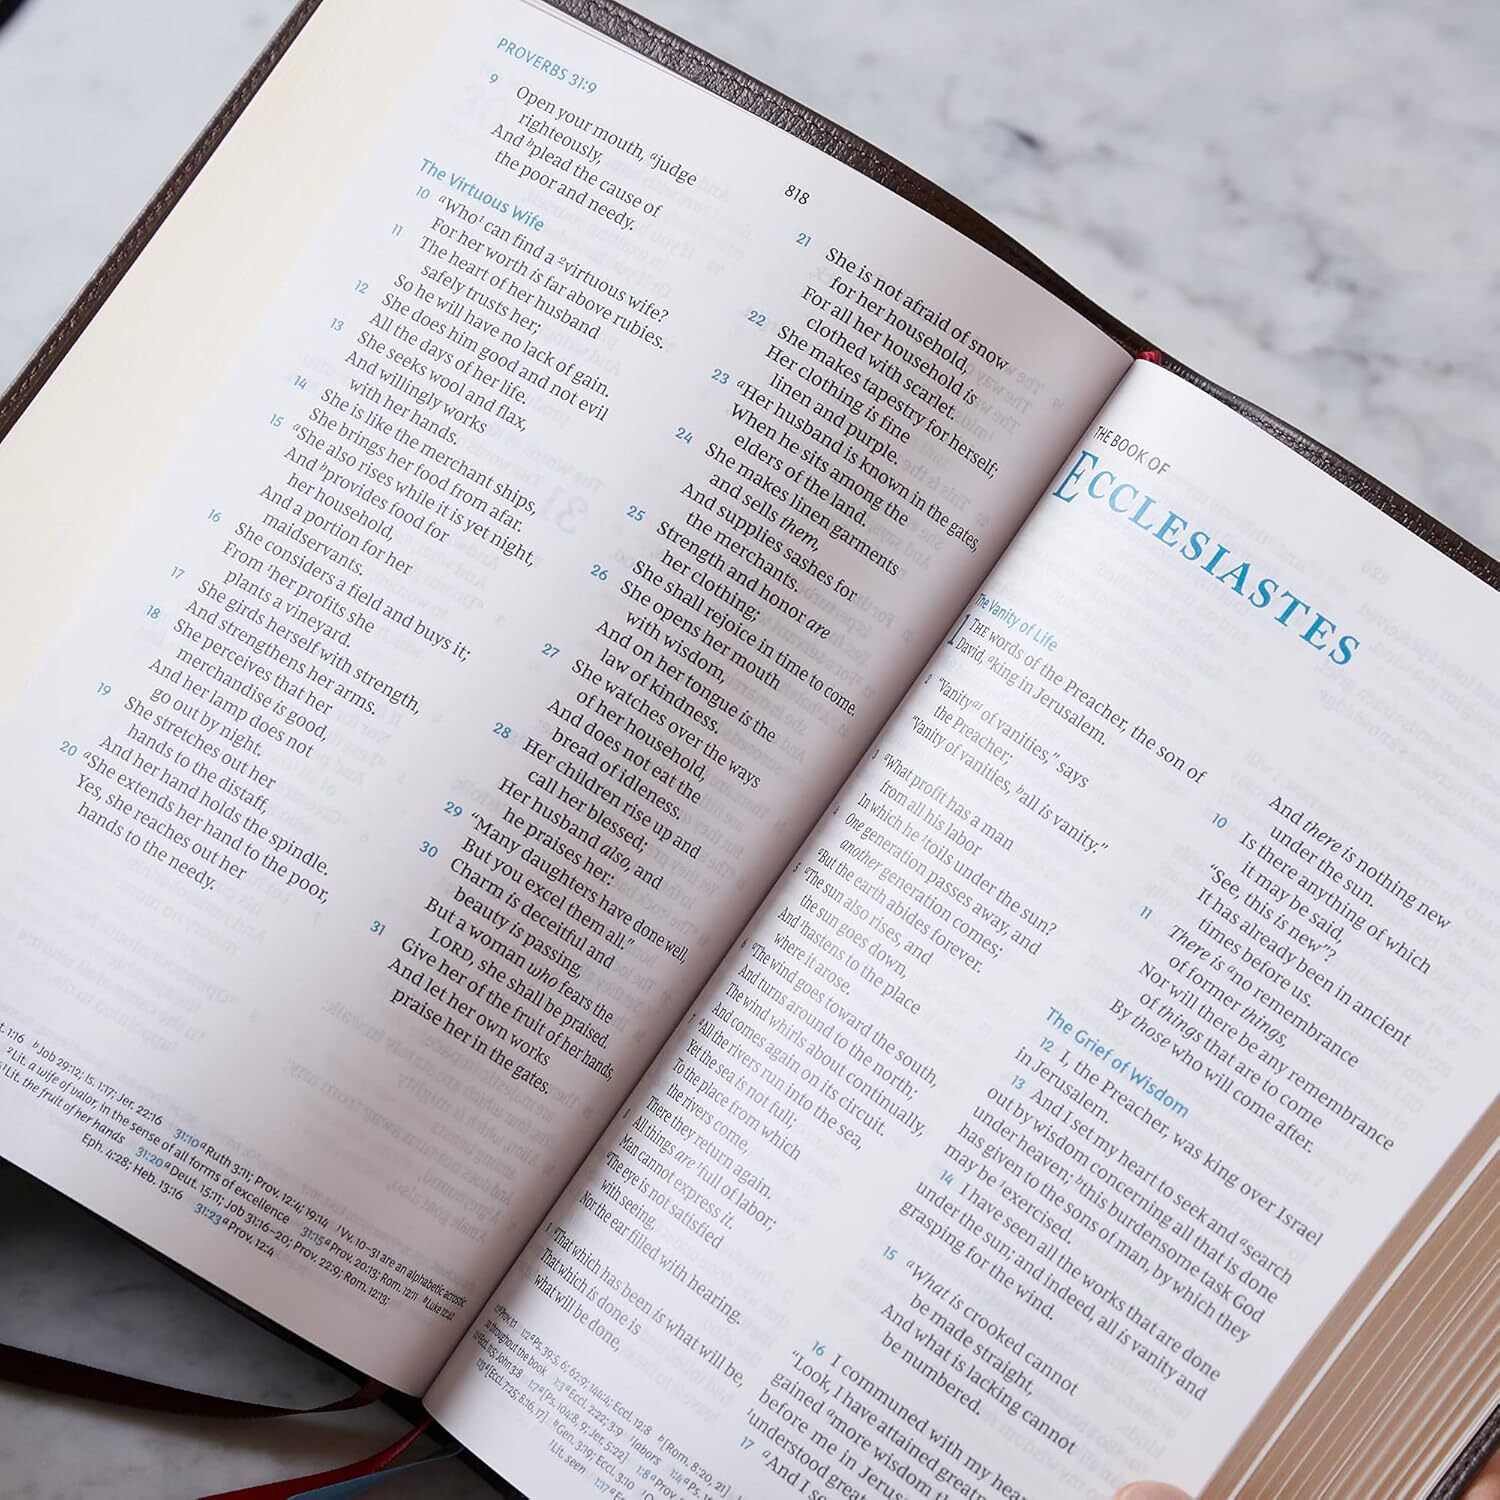 PROVERBS 31:9
818
9 Open your mouth, ajudge
righteously,
And bplead the cause of
the poor and needy.
The Virtuous Wife
10 aWho1 can find a 2virtuous wife?
For her worth is far above rubies.
11 The heart of her husband
safely trusts her;
So he will have no lack of gain.
12 She does him good and not evil
All the days of her life.
13 She seeks wool and flax,
And willingly works
with her hands.
14 She is like the merchant ships,
She brings her food from afar.
15 aShe also rises while it is yet night,
And bprovides food for
her household,
And a portion for her
maidservants.
16 She considers a field and buys it;
From 1her profits she
plants a vineyard.
17 She girds herself with strength,
And strengthens her arms.
18 She perceives that her
merchandise is good,
And her lamp does not
go out by night.
19 She stretches out her
hands to the distaff,
And her hand holds the spindle.
20 aShe extends her hand to the poor,
Yes, she reaches out her
hands to the needy.
21 She is not afraid of snow
for her household,
For all her household is
clothed with scarlet.
22 She makes tapestry for herself;
Her clothing is fine
linen and purple.
23 aHer husband is known in the gates,
When he sits among the
elders of the land.
24 She makes linen garments
and sells them,
And supplies sashes for
the merchants.
25 Strength and honor are
her clothing;
She shall rejoice in time to come.
26 She opens her mouth
with wisdom,
And on her tongue is the
law of kindness.
27 She watches over the ways
of her household,
And does not eat the
bread of idleness.
28 Her children rise up and
call her blessed;
Her husband also, and
he praises her:
29 "Many daughters have done well,
But you excel them all."
30 Charm is deceitful and
beauty is passing,
But a woman who fears the
LORD, she shall be praised.
31 Give her of the fruit of her hands,
And let her own works
praise her in the gates.
1:16 bJob 29:12; Is. 1:17; Jer. 22:16 31:10 aRuth 3:11; Prov. 12:4; 19:14 1Vv. 10–31 are an alphabetic acrostic
2Lit. a wife of valor, in the sense of all forms of excellence 31:15 aProv. 20:13; Rom. 12:11 bLuke 12:42
1Lit. the fruit of her hands 31:20 aDeut. 15:11; Job 31:16–20; Prov. 22:9; Rom. 12:13;
Eph. 4:28; Heb. 13:16 31:23 aProv. 12:4
THE BOOK OF
ECCLESIASTES
The Vanity of Life
1 THE words of the Preacher, the son of
David, aking in Jerusalem.
2 "Vanitya1 of vanities," says
the Preacher;
"Vanity of vanities, ball is vanity."
3 aWhat profit has a man
from all his labor
In which he 1toils under the sun?
4 One generation passes away, and
another generation comes;
aBut the earth abides forever.
5 aThe sun also rises, and
the sun goes down,
And 1hastens to the place
where it arose.
6 aThe wind goes toward the south,
And turns around to the north;
The wind whirls about continually,
And comes again on its circuit.
7 aAll the rivers run into the sea,
Yet the sea is not full;
To the place from which
the rivers come,
There they return again.
8 All things are 1full of labor;
Man cannot express it.
aThe eye is not satisfied
with seeing,
Nor the ear filled with hearing.
aThat which has been is what will be,
That which is done is
what will be done,
And there is nothing new
under the sun.
10 Is there anything of which
it may be said,
"See, this is new"?
It has already been in ancient
times before us.
11 There is ano remembrance
of former things,
Nor will there be any remembrance
of things that are to come
By those who will come after.
The Grief of Wisdom
12 I, the Preacher, was king over Israel
in Jerusalem.
13 And I set my heart to seek and asearch
out by wisdom concerning all that is done
under heaven; bthis burdensome task God
has given to the sons of man, by which they
may be 1exercised.
14 I have seen all the works that are done
under the sun; and indeed, all is vanity and
grasping for the wind.
15 aWhat is crooked cannot
be made straight,
And what is lacking cannot
be numbered.
16 I communed with my hear
"Look, I have attained great
gained amore wisdom th
before me in Jerus
1understood great
17 aAnd I s
1:2 aPs. 39:5, 6; 62:9; 144:4; Eccl. 12:8 b[Rom. 8:20, 21]
throughout the book 1:3 aEccl. 2:22; 3:9 1labors 1:4 aPs.
John 3:8 1:7 a[Ps. 104:8, 9; Jer. 5:22] 1:8 aProv.
[Eccl. 7:25; 8:16, 17] bGen. 3:19; Eccl. 3:10
1Lit. seen 1:17